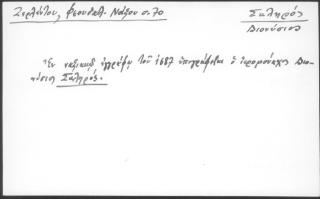 Ζερλέντου, Φεουδαλ. Νάξου σ. 70
Σαληρός
Διονύσιος
Ἐν ναξιακῷ ἐγγράφῳ τοῦ 1687 ὑπογράφεται ὁ ἱερομόναχος Διο-
νύσιος Σαληρός.